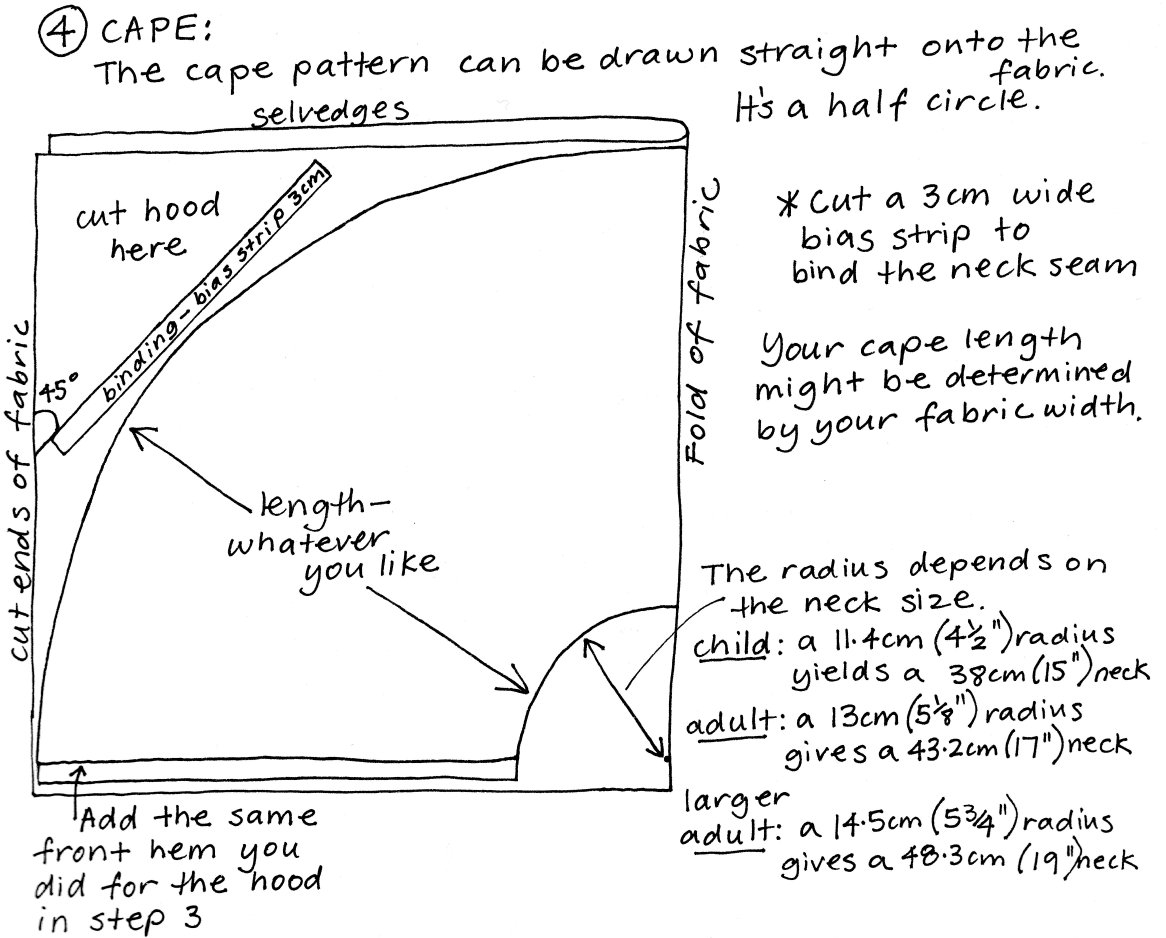 ④ CAPE:
The cape pattern can be drawn straight onto the
fabric.
It's a half circle.
selvedges
cut hood
here
binding - bias strip 3cm
45°
cut ends of fabric
Fold of fabric
* Cut a 3cm wide
bias strip to
bind the neck seam
Your cape length
might be determined
by your fabric width.
length -
whatever
you like
The radius depends on
the neck size.
child: a 11.4cm (4½") radius
yields a 38cm (15") neck
adult: a 13cm (5⅛") radius
gives a 43.2cm (17") neck
larger
adult: a 14.5cm (5¾") radius
gives a 48.3cm (19") neck
Add the same
front hem you
did for the hood
in step 3